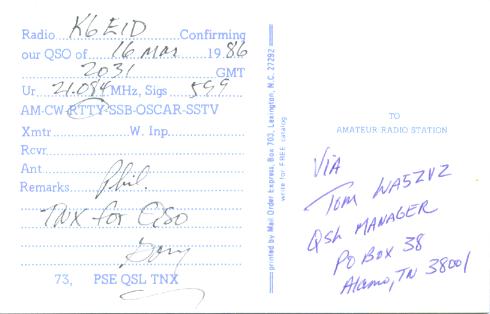 Radio K6EID Confirming
our QSO of 16 Mar 1986
2031 GMT
Ur 21.084 MHz, Sigs 599
AM-CW-RTTY-SSB-OSCAR-SSTV
Xmtr W. Inp.
Rcvr
Ant
Remarks Phil.
TNX for QSO
73, PSE QSL TNX
printed by Mail Order Express, Box 703, Lexington, N.C. 27292
write for FREE catalog
TO
AMATEUR RADIO STATION
VIA
TOM WA5ZVZ
QSL MANAGER
PO BOX 38
Alamo, TN 38001